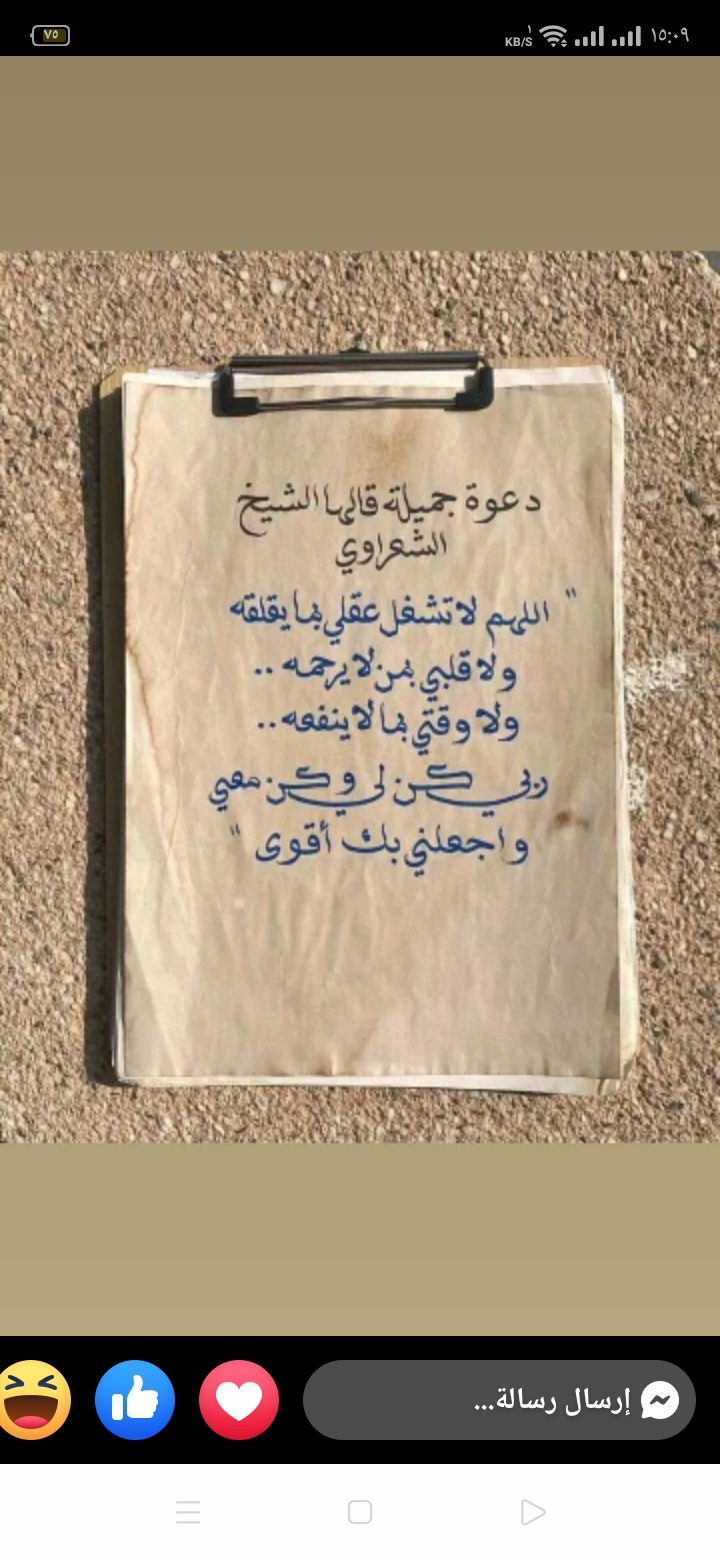 ١٥:٠٩
١
KB/S
٧٥
دعوة جميلة قالها الشيخ
الشعراوي
" اللهم لا تشغل عقلي بما يقلقه
ولا قلبي بمن لا يرحمه ..
ولا وقتي بما لا ينفعه ..
ربي كن لي وكن معي
واجعلني بك أقوى "
إرسال رسالة...